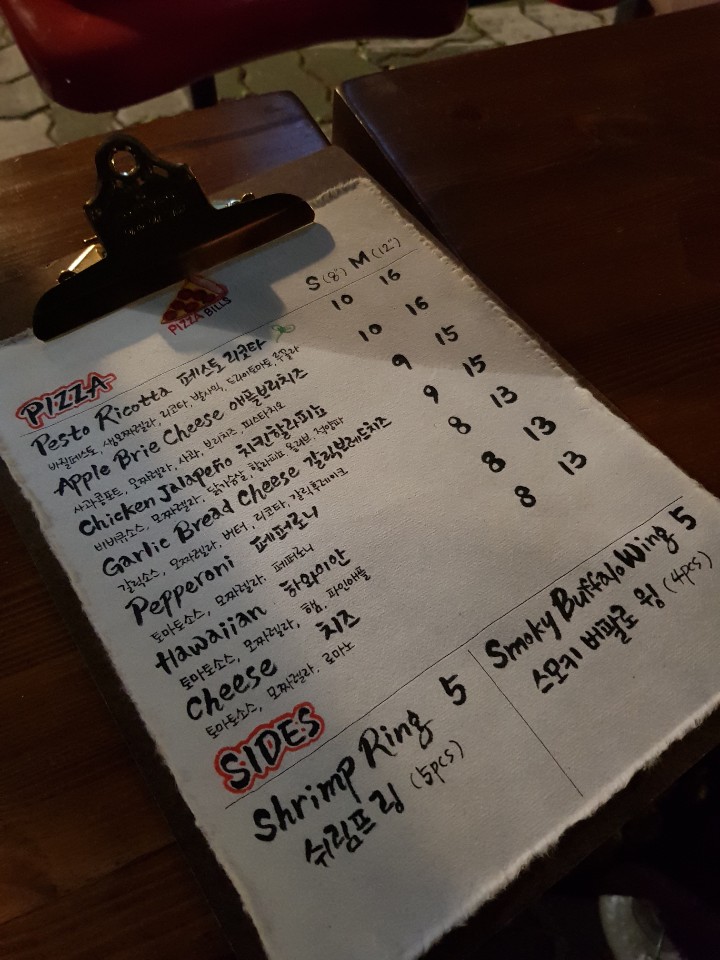 PIZZA BILLS
S (8") M (12")
PIZZA
Pesto Ricotta 페스토 리코타 10 16
바질페스토, 생모짜렐라, 리코타, 발사믹, 드라이토마토, 루꼴라
Apple Brie Cheese 애플브리치즈 10 16
사과콩포트, 모짜렐라, 사과, 브리치즈, 피스타치오
Chicken Jalapeño 치킨할라피뇨 9 15
비비큐소스, 모짜렐라, 닭가슴살, 할라피뇨, 올리브, 적양파
Garlic Bread Cheese 갈릭브레드치즈 9 15
갈릭소스, 모짜렐라, 버터, 리코타, 갈릭후레이크
Pepperoni 페퍼로니 8 13
토마토소스, 모짜렐라, 페퍼로니
Hawaiian 하와이안 8 13
토마토소스, 모짜렐라, 햄, 파인애플
Cheese 치즈 8 13
토마토소스, 모짜렐라, 로마노
SIDES
Shrimp Ring 5
쉬림프링 (5pcs)
Smoky Buffalo Wing 5
스모키 버팔로 윙 (4pcs)